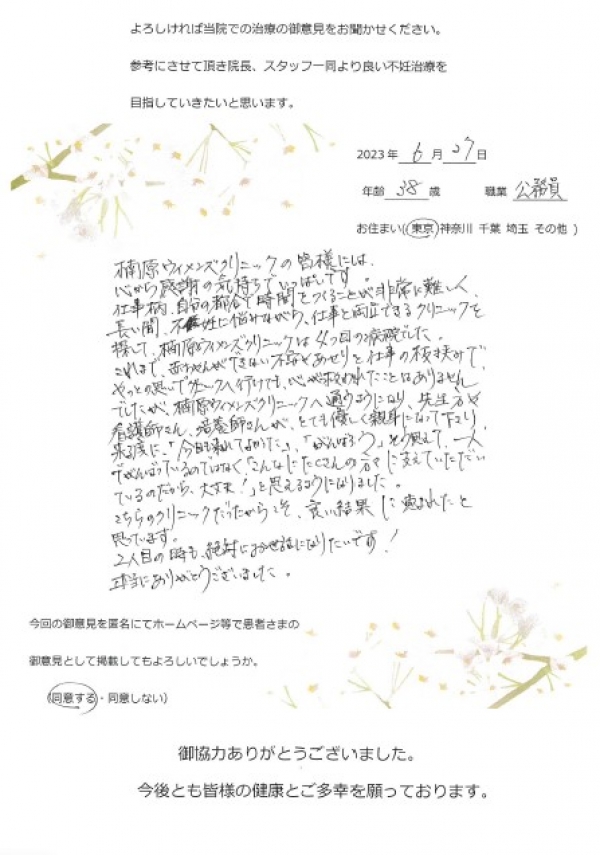 よろしければ当院での治療の御意見をお聞かせください。
参考にさせて頂き院長、スタッフ一同より良い不妊治療を
目指していきたいと思います。
2023年 6 月 27 日
年齢 38 歳 職業 公務員
お住まい( 東京 神奈川 千葉 埼玉 その他 )
楠原ウィメンズクリニックの皆様には、
心から感謝の気持ちでいっぱいです。
仕事柄、自分の都合で時間をつくることが非常に難しく、
長い間、不妊に悩みながら、仕事と両立できるクリニックを
探して、楠原ウィメンズクリニックは4つ目の病院でした。
これまで、赤ちゃんができない不安やあせりと仕事の板挟みで、
やっとの思いでクリニックへ行けても、心が救われたことはありません
でしたが、楠原ウィメンズクリニックへ通うようになり、先生方や
看護師さん、培養師さんが、とても優しく親身になって下さり、
来る度に、「今日も来れてよかった」、「がんばろう」、と思えて、一人
でがんばっているのではなく「こんなにたくさんの方々に支えていただい
ているのだから、大丈夫！」と思えるようになりました。
こちらのクリニックだったからこそ、良い結果に恵まれたと
思っています。
2人目の時も、絶対にお世話になりたいです！
本当にありがとうございました。
今回の御意見を匿名にてホームページ等で患者さまの
御意見として掲載してもよろしいでしょうか。
(同意する・同意しない)
御協力ありがとうございました。
今後とも皆様の健康とご多幸を願っております。